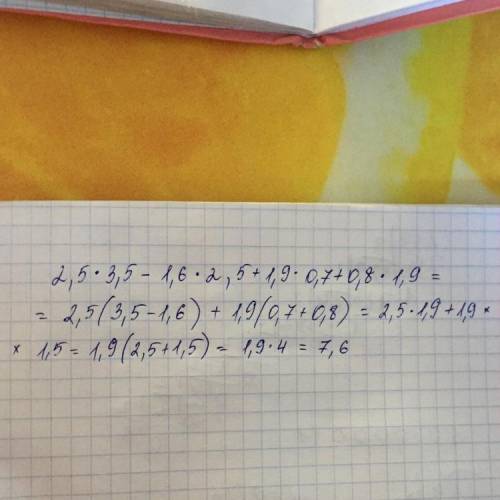 2,5·3,5-1,6·2,5+1,9·0,7+0,8·1,9=
= 2,5(3,5-1,6) + 1,9(0,7+0,8) = 2,5·1,9+1,9×
× 1,5 = 1,9(2,5+1,5) = 1,9·4 = 7,6